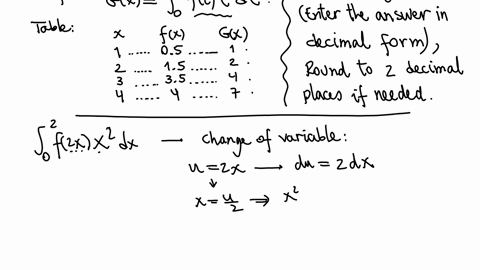 G(x) = ∫₀ f(t) t dt.
(Enter the answer in
Table: x f(x) G(x)
decimal form),
1 ..... 0.5 ..... 1
2 ..... 1.5 ..... 2
Round to 2 decimal
3 ..... 3.5 ..... 4
4 ..... 4 ..... 7
places if needed.
∫₀² f(2x) x² dx → change of variable:
u = 2x → du = 2dx
↓
x = u/2 ⇒ x²